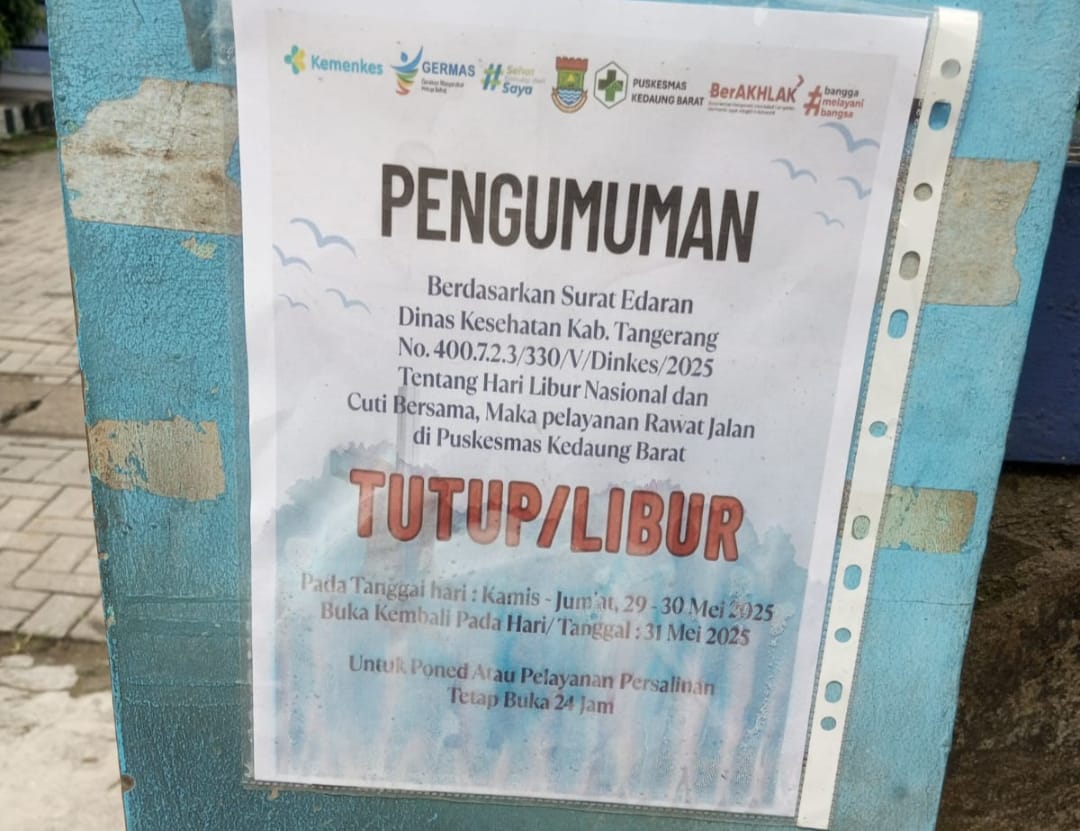 Kemenkes
GERMAS
Gerakan Masyarakat
Hidup Sehat
#Sehat
Saya
PUSKESMAS
KEDAUNG BARAT
BerAKHLAK
#bangga
melayani
bangsa
PENGUMUMAN
Berdasarkan Surat Edaran
Dinas Kesehatan Kab. Tangerang
No. 400.7.2.3/330/V/Dinkes/2025
Tentang Hari Libur Nasional dan
Cuti Bersama, Maka pelayanan Rawat Jalan
di Puskesmas Kedaung Barat
TUTUP/LIBUR
Pada Tanggal hari : Kamis - Jum'at, 29 - 30 Mei 2025
Buka Kembali Pada Hari/ Tanggal : 31 Mei 2025
Untuk Poned Atau Pelayanan Persalinan
Tetap Buka 24 Jam